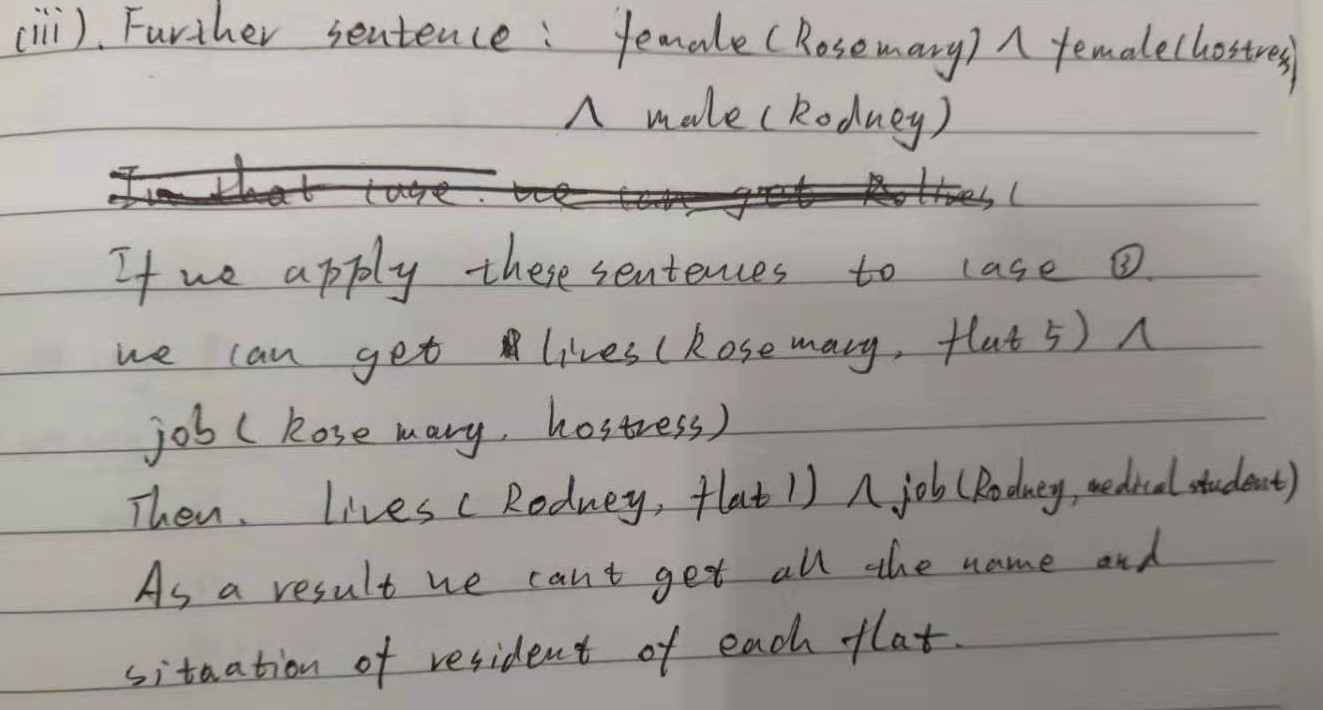 (iii). Further sentence : female(Rosemary) ∧ female(hostress)
∧ male(Rodney)
In that case. we can get
If we apply these sentences to case ③.
we can get lives(Rosemary, flat 5) ∧
job(Rosemary, hostress)
Then. lives(Rodney, flat 1) ∧ job(Rodney, medical student)
As a result we cant get all the name and
sitaation of resident of each flat.